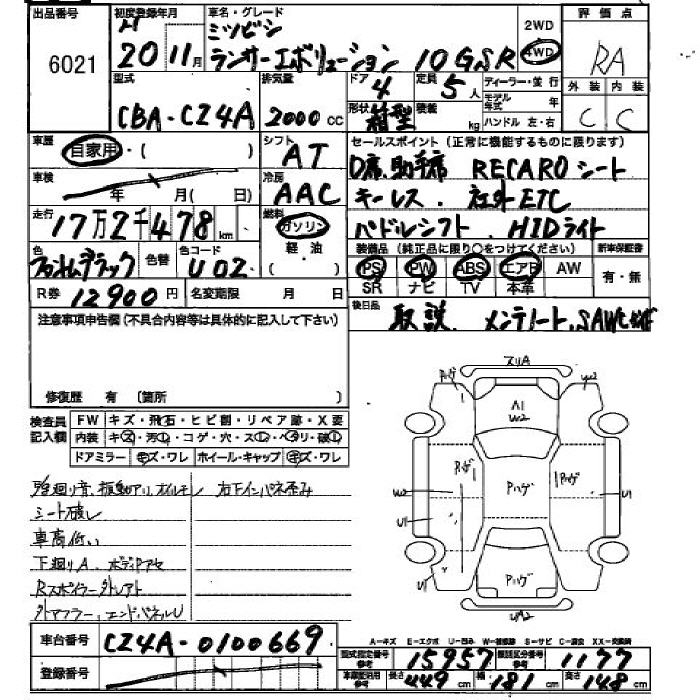 出品番号 初度登録年月 車名・グレード 2WD 評価点
6021 H20 11月 ミツビシ 4WD RA
ランサーエボリューション 10 GSR
外装 内装
C C
型式 排気量 ドア 定員 ディーラー・並行
CBA-CZ4A 2000cc 4 5人 モデル年式 年
形状 箱型 装歴 kg ハンドル 左・右
車歴 自家用・( ) シフト AT
セールスポイント(正常に機能するものに限ります)
D席、助手席 RECAROシート
車検 年 月( 日) 冷房 AAC
キーレス、社外ETC
走行 17万2千478km 燃料 ガソリン 軽・油
パドルシフト、HIDライト
色 ファントムブラック 色替 色コード U02
装備品(純正品に限り○をつけてください) 新車保証書
PS PW ABS エアB AW 有・無
SR ナビ TV 本革
R券 12900円 名変期限 月 日
後日品 取説、メンテノート、SAWC
注意事項申告欄(不具合内容等は具体的に記入して下さい)
修復歴 有 〔箇所 〕
検査員記入欄 FW キズ・飛石・ヒビ割・リペア跡・X要
内装 キズ・汚レ・コゲ・穴・スレ・ヘタリ・破レ
ドアミラー キズ・ワレ ホイール・キャップ キズ・ワレ
シート破レ
車高低い
下廻りA、ボディPアセ
Rスポイラー
外マフラー、エンドパネルU
スリA
W2
A1
W2
Pハゲ
Pハゲ
Pハゲ
Pハゲ
W2
U1
U1
U1
Pハゲ
UA2
A-キズ E-エクボ U-凹み W-補修跡 S-サビ C-腐食 XX-交換済
車台番号 CZ4A-0100669
型式指定番号 参考 15957 類別区分番号 参考 1177
登録番号
長さ 449cm 幅 181cm 高さ 148cm